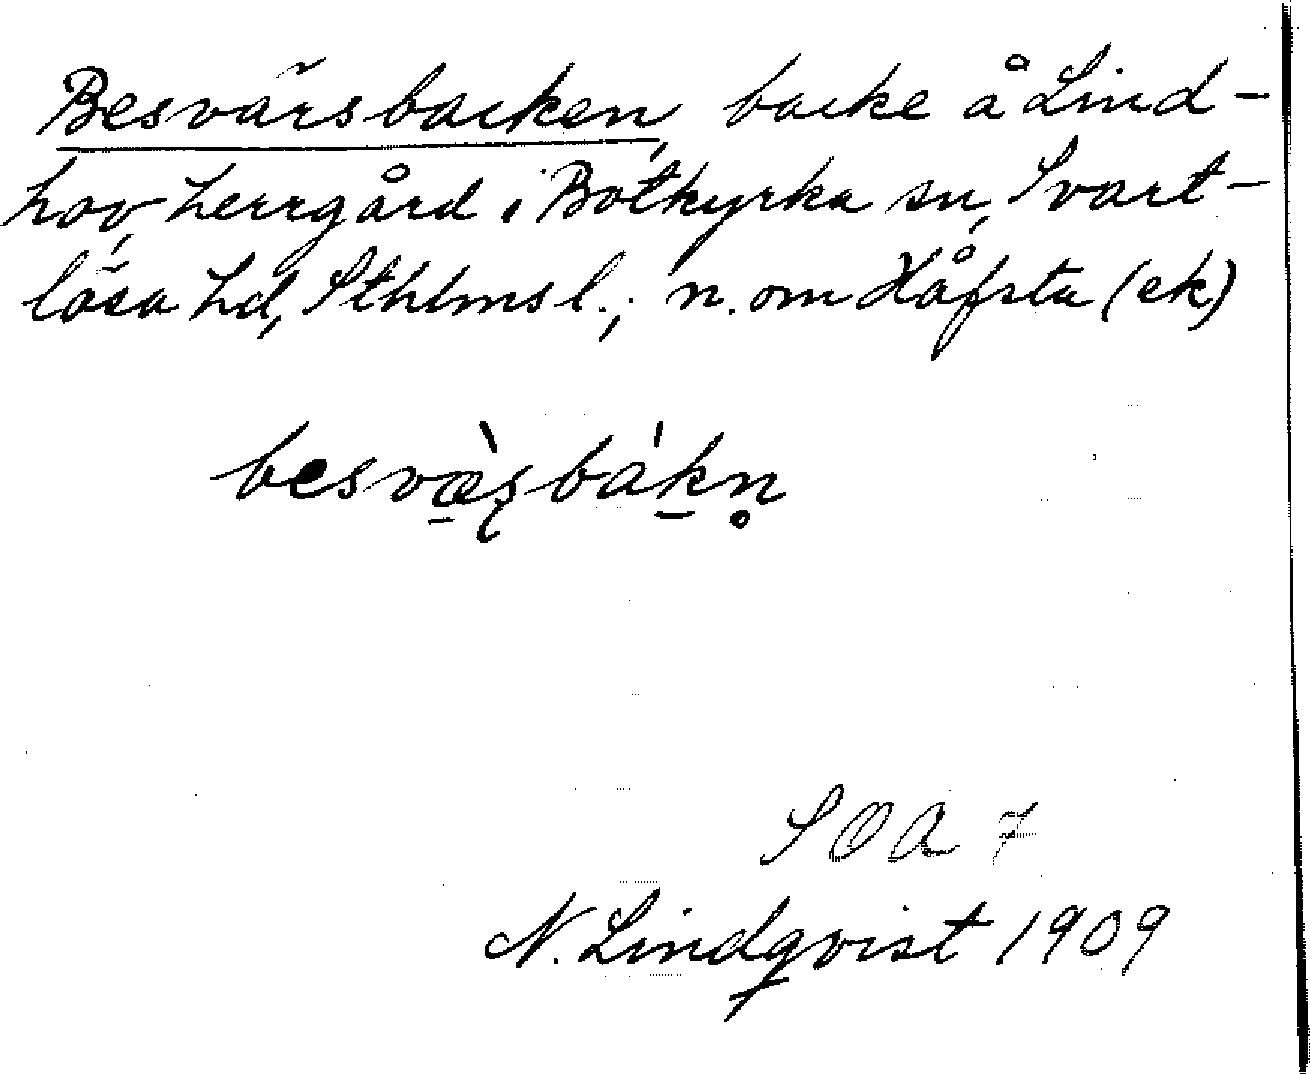 Besvärsbacken, backe å Lind-
hov, herrgård i Botkyrka sn, Svart-
lösa hd, Sthlmsl.; n. om Håfsta (ek)
besvæ̀ʂbákn̥
SOA 7
N. Lindqvist 1909